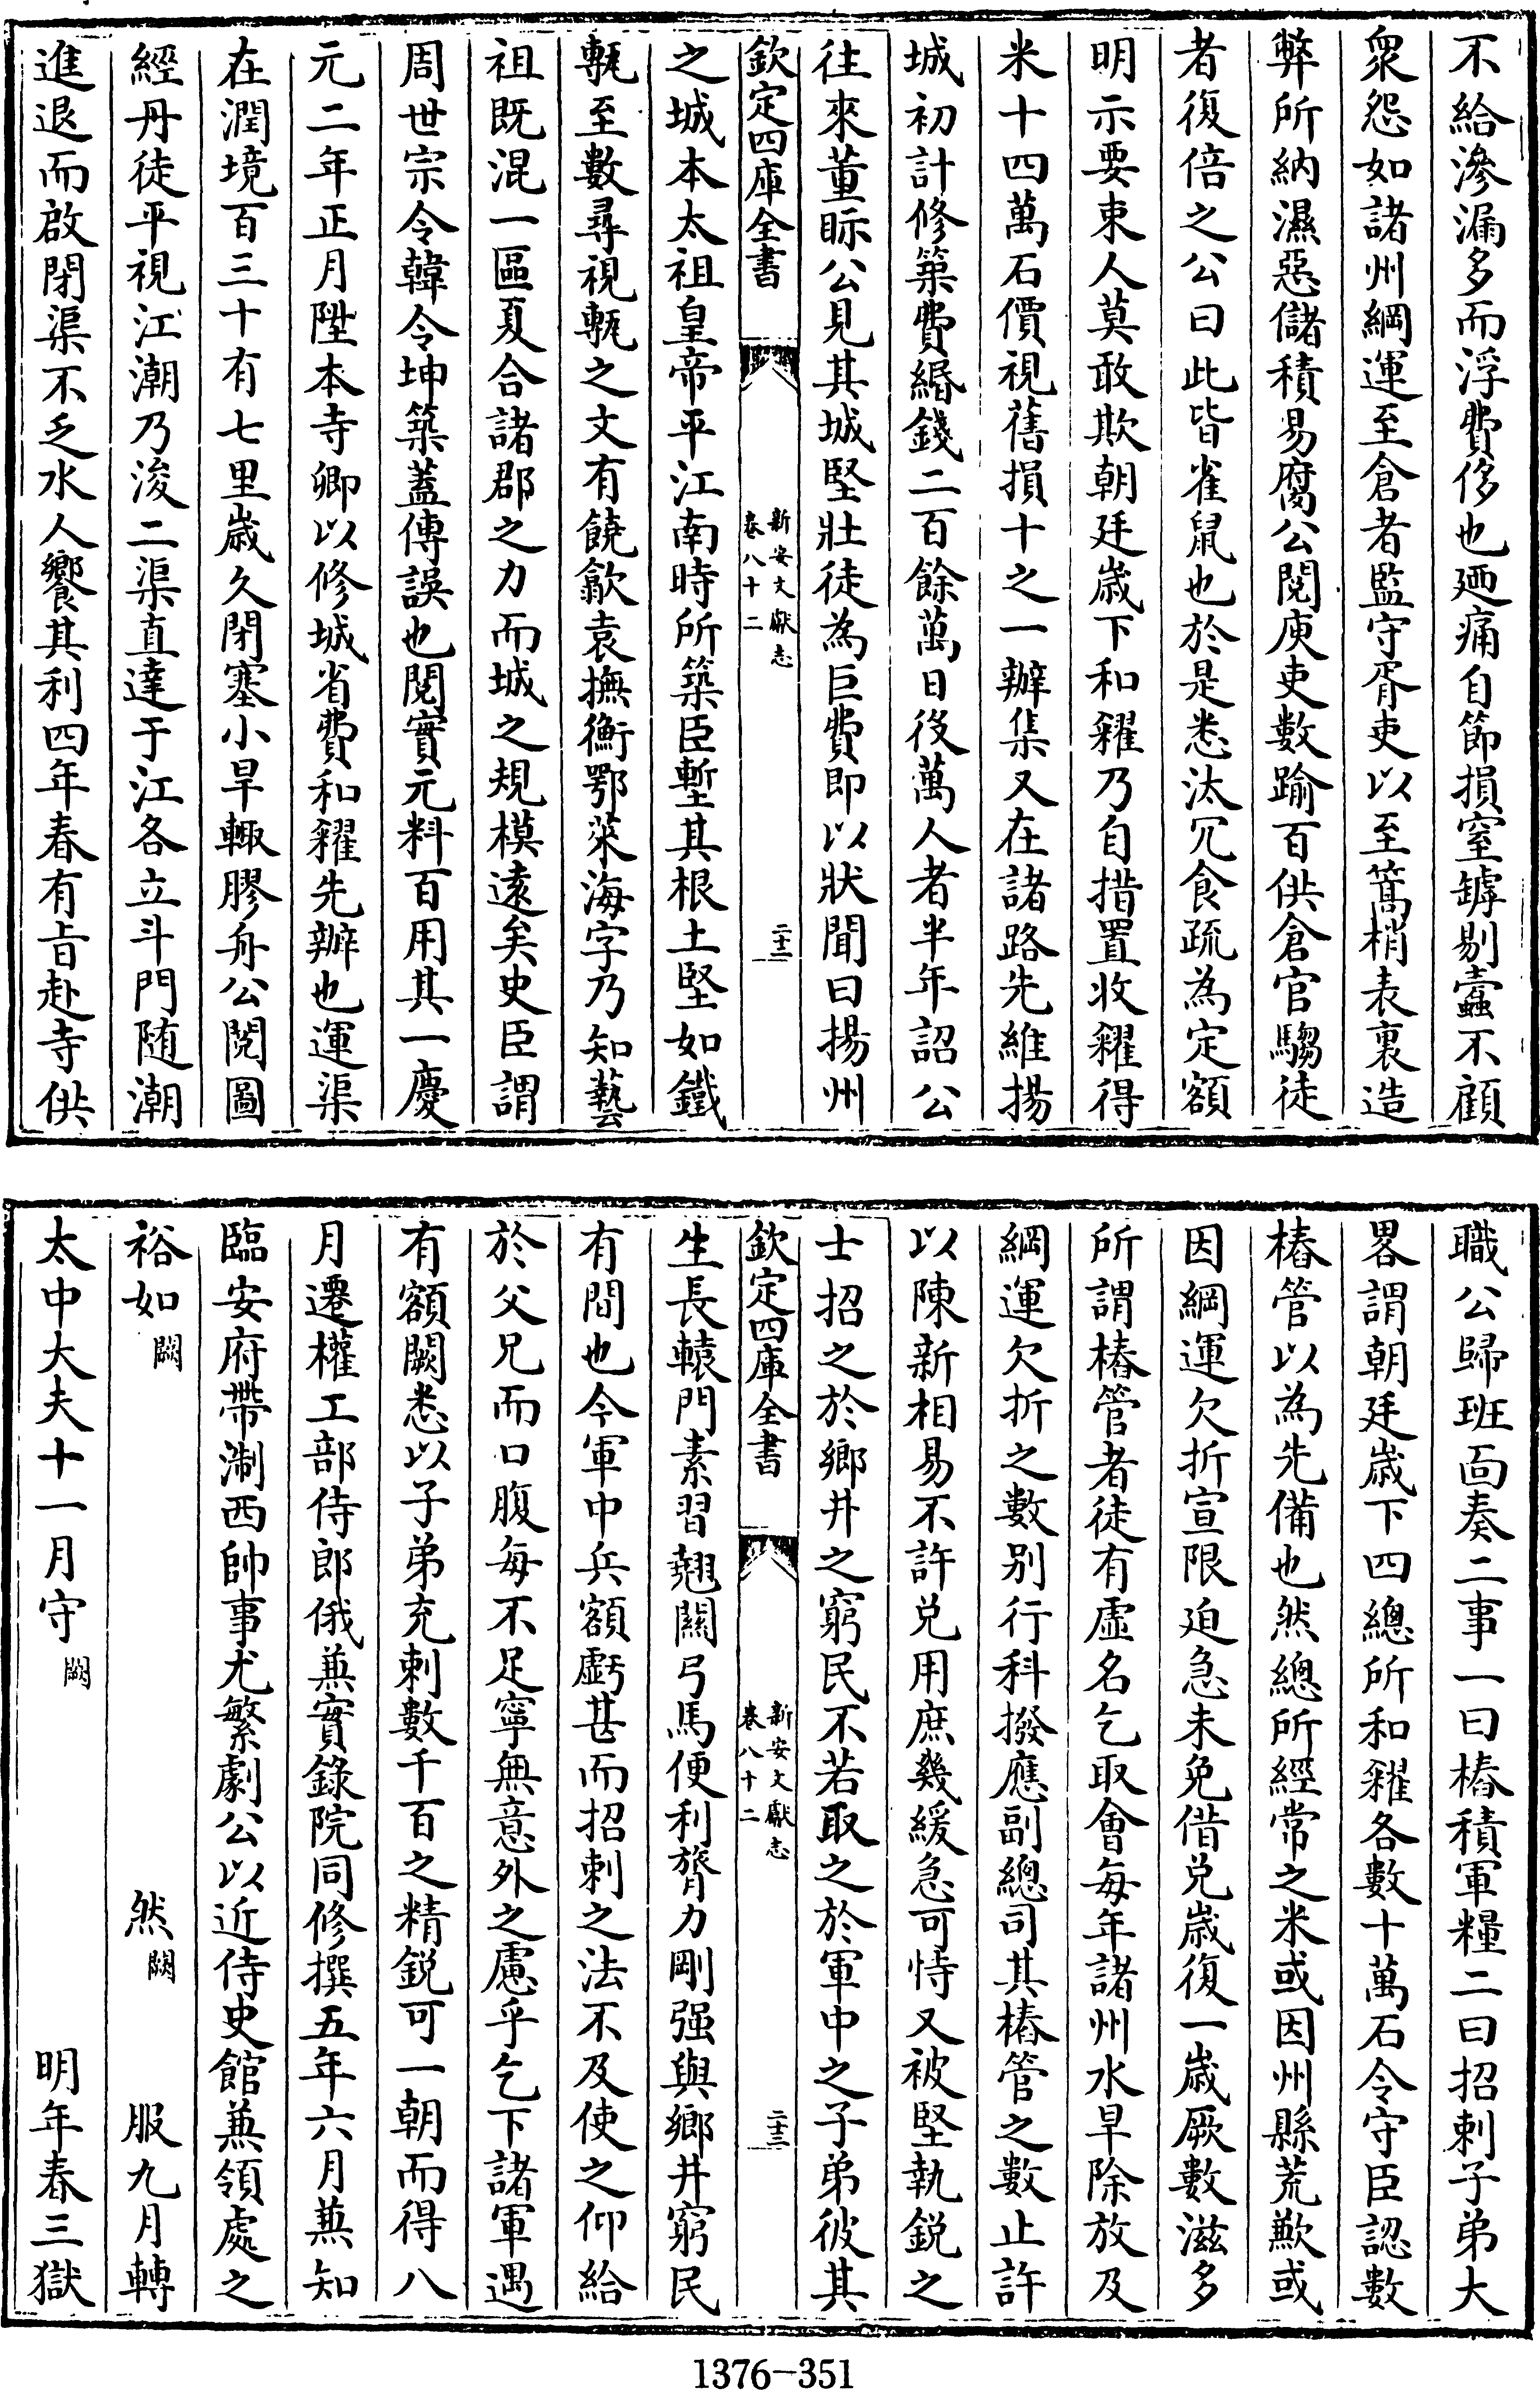 不給滲漏多而浮費侈也廼痛自節損窒罅剔蠧不顧
衆怨如諸州綱運至倉者監守胥吏以至篙梢表裏造
弊所納濕惡儲積易腐公閲庾吏數踰百供倉官騶徒
者復倍之公曰此皆雀鼠也於是悉汰冗食疏為定額
明示要束人莫敢欺朝廷歳下和糴乃自措置收糴得
米十四萬石價視舊損十之一辦集又在諸路先維揚
城初計修築費緡錢二百餘萬日役萬人者半年詔公
往來董眎公見其城堅壯徒為巨費即以狀聞曰揚州
欽定四庫全書
新安文獻志
卷八十二
二十二
之城本太祖皇帝平江南時所築臣塹其根土堅如鐵
甎至數尋視甎之文有饒歙袁撫衡鄂萊海字乃知藝
祖既混一區夏合諸郡之力而城之規模逺矣史臣謂
周世宗令韓令坤築蓋傳誤也閲實元料百用其一慶
元二年正月陞本寺卿以修城省費和糴先辦也運渠
在潤境百三十有七里歳久閉塞小旱輙膠舟公閲圖
經丹徒平視江潮乃浚二渠直達于江各立斗門随潮
進退而啟閉渠不乏水人饗其利四年春有旨赴寺供
職公歸班面奏二事一曰樁積軍糧二曰招刺子弟大
畧謂朝廷歳下四總所和糴各數十萬石令守臣認數
樁管以為先備也然總所經常之米或因州縣荒歉或
因綱運欠折宣限廹急未免借兑歳復一歳厥數滋多
所謂樁管者徒有虛名乞取會每年諸州水旱除放及
綱運欠折之數别行科撥應副總司其樁管之數止許
以陳新相易不許兑用庶幾緩急可恃又被堅執鋭之
士招之於鄉井之窮民不若取之於軍中之子弟彼其
欽定四庫全書
新安文獻志
卷八十二
二十三
生長轅門素習翹關弓馬便利膂力剛强與鄉井窮民
有間也今軍中兵額虧甚而招刺之法不及使之仰給
於父兄而口腹每不足寧無意外之慮乎乞下諸軍遇
有額闕悉以子弟充刺數千百之精鋭可一朝而得八
月遷權工部侍郎俄兼實錄院同修撰五年六月兼知
臨安府帶淛西帥事尤繁劇公以近侍史館兼領處之
裕如闕 然闕 服九月轉
太中大夫十一月守闕 明年春三獄
1376-351